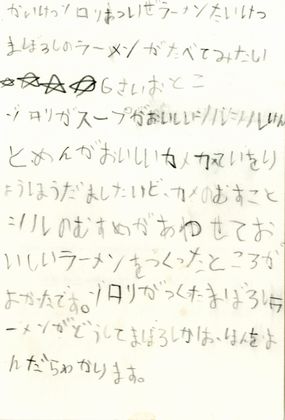 かいけつゾロリあついぜラーメンたいけつ
まぼろしのラーメンがたべてみたい
6さいおとこ
ゾロリがスープがおいしいシルシルけん
とめんがおいしいカメカメていをり
ょうほうだましたけど、カメのむすこと
シルのむすめがあわせてお
いしいラーメンをつくったところが
よかたです。ゾロリがつくたまぼろしラ
ーメンがどうしてまぼろしかは、ほんをよ
んだらわかります。